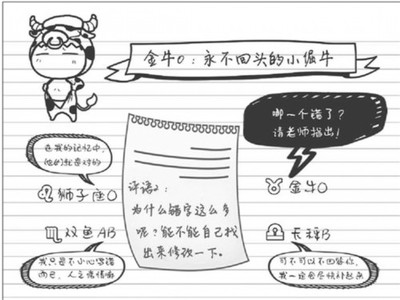 金牛O：永不回头的小倔牛
哪一个错了？
请老师指出！
在我的记忆中，
他们就是对的
狮子座O
评语2：
为什么错字这么多
呢？能不能自己找
出来修改一下。
金牛O
双鱼AB
天秤B
我只是不小心写错
而已，人之常情嘛
可不可以不回答你，
我一定会尽快补起点